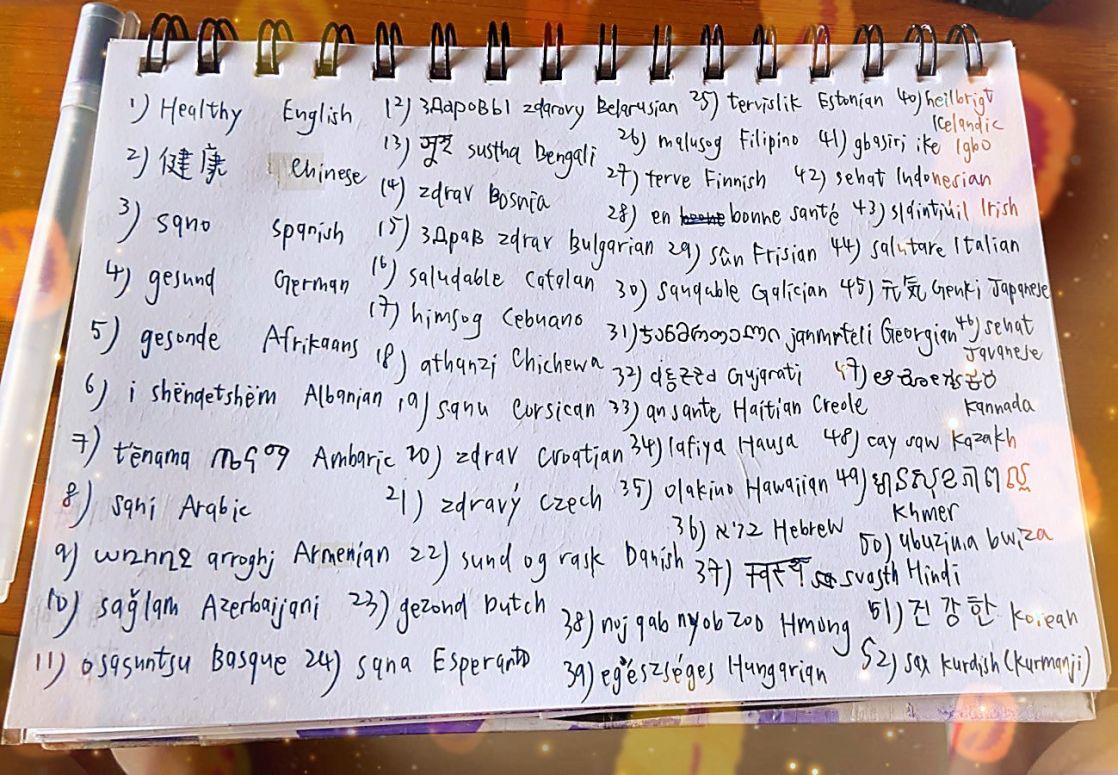 1) Healthy English
2) 健康 Chinese
3) sano Spanish
4) gesund German
5) gesonde Afrikaans
6) i shëndetshëm Albanian
7) tēnama ጤናማ Ambaric
8) sani Arabic
9) առողջ arroghj Armenian
10) sağlam Azerbaijani
11) osasuntsu Basque
12) здаровы zdarovy Belarusian
13) সুস্থ sustha Bengali
14) zdrav Bosnia
15) здрав zdrav Bulgarian
16) saludable Catalan
17) himsog Cebuano
18) athanzi Chichewa
19) sanu Corsican
20) zdrav Croatian
21) zdravý Czech
22) sund og rask Danish
23) gezond Dutch
24) sana Esperanto
25) tervislik Estonian
26) malusog Filipino
27) terve Finnish
28) en bonne santé
29) sûn Frisian
30) saudable Galician
31) ჯანმრთელი janmrteli Georgian
32) Gujarati
33) an sante Haitian Creole
34) lafiya Hausa
35) olakino Hawaiian
36) בריא Hebrew
37) स्वस्थ svasth Hindi
38) noj qab nyob zoo Hmong
39) egészséges Hungarian
40) heilbrigt Icelandic
41) gbasiri ike Igbo
42) sehat Indonesian
43) sláintiúil Irish
44) salutare Italian
45) 元気 Genki Japanese
46) sehat Javanese
47) Kannada
48) cay saw Kazakh
49) Khmer
50) ubuzima bwiza
51) 건강한 Korean
52) sax Kurdish (Kurmanji)